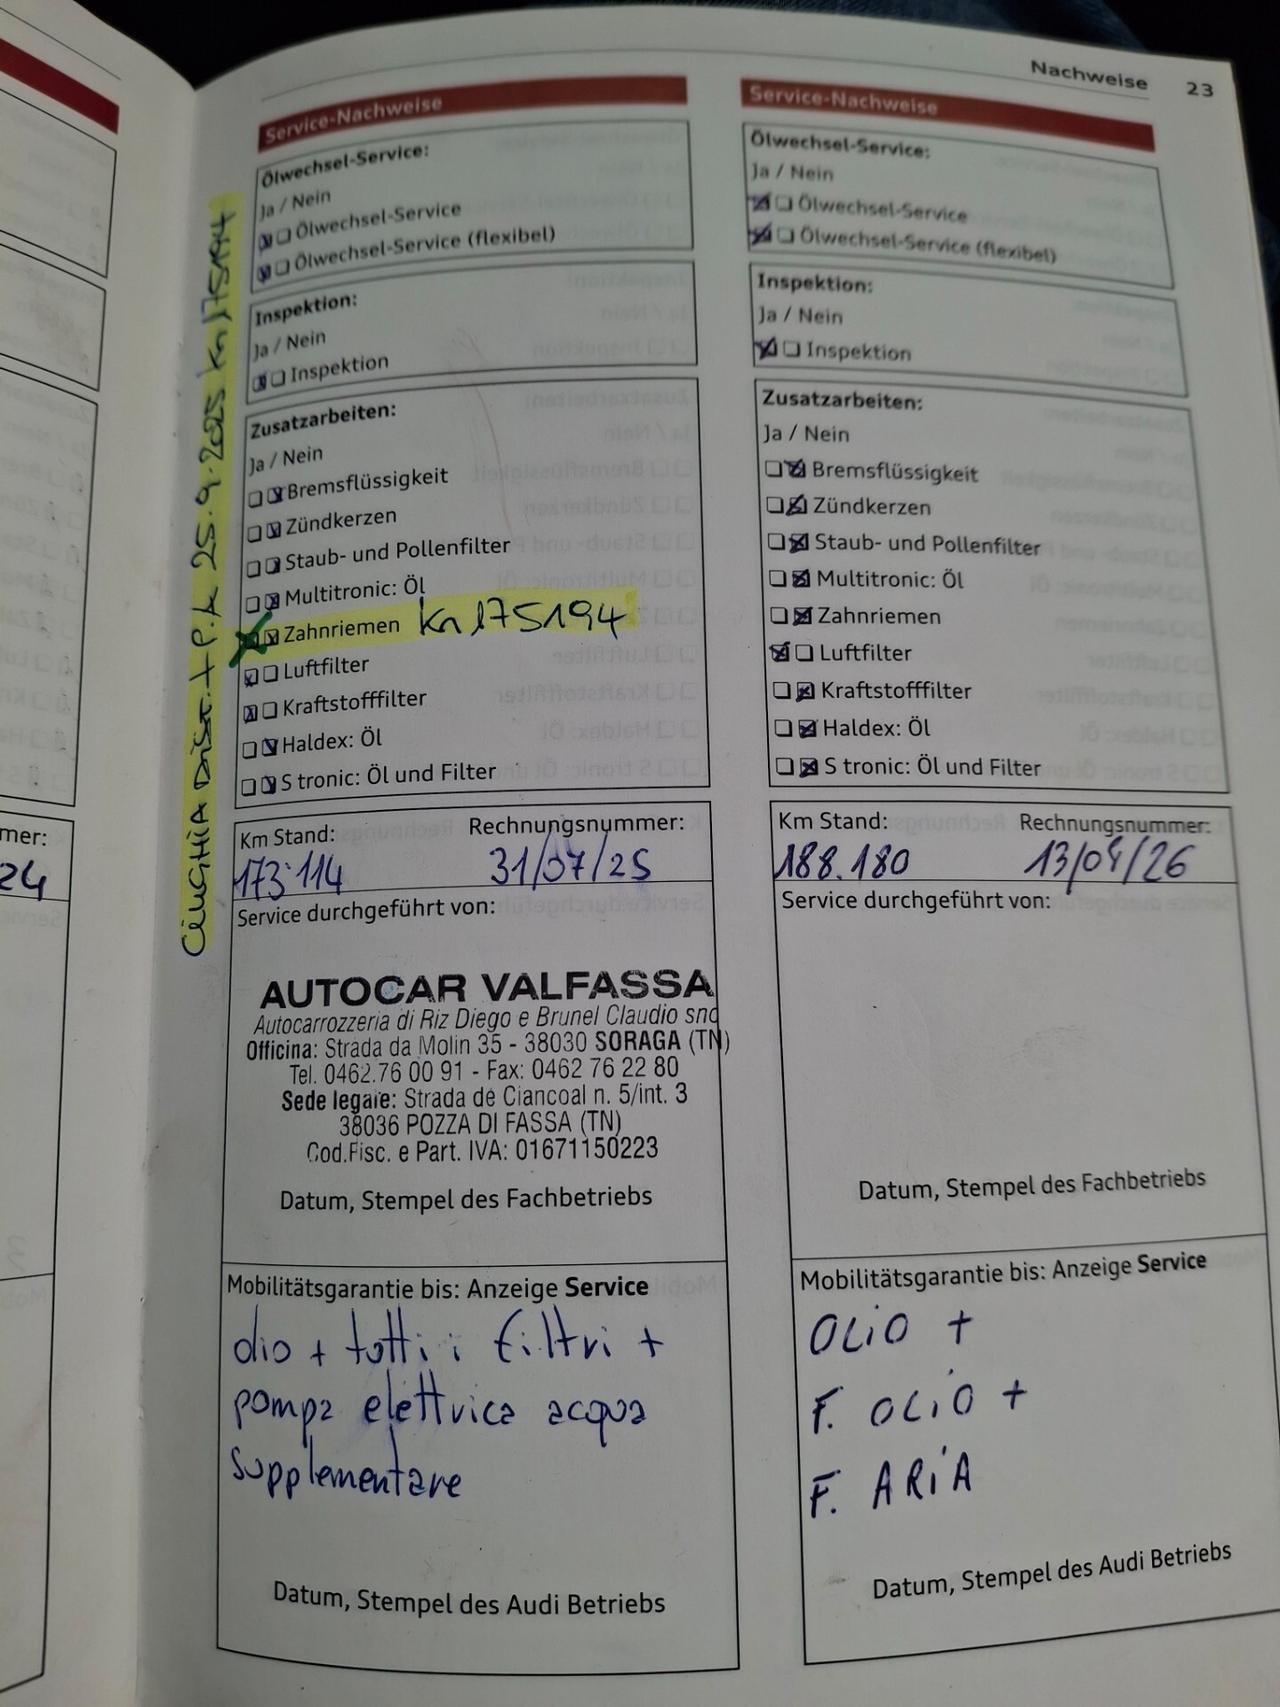 Nachweise 23
Service-Nachweise
Ölwechsel-Service:
Ja / Nein
Ölwechsel-Service
Ölwechsel-Service (flexibel)
Inspektion:
Ja / Nein
Inspektion
Zusatzarbeiten:
Ja / Nein
Bremsflüssigkeit
Zündkerzen
Staub- und Pollenfilter
Multitronic: Öl
Zahnriemen Km 175194
Luftfilter
Kraftstofffilter
Haldex: Öl
S tronic: Öl und Filter
Km Stand: Rechnungsnummer:
173.114 31/07/25
Service durchgeführt von:
AUTOCAR VALFASSA
Autocarrozzeria di Riz Diego e Brunel Claudio snc
Officina: Strada da Molin 35 - 38030 SORAGA (TN)
Tel. 0462.76 00 91 - Fax: 0462 76 22 80
Sede legale: Strada de Ciancoal n. 5/int. 3
38036 POZZA DI FASSA (TN)
Cod.Fisc. e Part. IVA: 01671150223
Datum, Stempel des Fachbetriebs
Mobilitätsgarantie bis: Anzeige Service
olio + tutti i filtri +
pompa elettrica acqua
supplementare
Datum, Stempel des Audi Betriebs
CINGHIA DIST. + P.A 25.9.2025 Km 175194
Service-Nachweise
Ölwechsel-Service:
Ja / Nein
Ölwechsel-Service
Ölwechsel-Service (flexibel)
Inspektion:
Ja / Nein
Inspektion
Zusatzarbeiten:
Ja / Nein
Bremsflüssigkeit
Zündkerzen
Staub- und Pollenfilter
Multitronic: Öl
Zahnriemen
Luftfilter
Kraftstofffilter
Haldex: Öl
S tronic: Öl und Filter
Km Stand: Rechnungsnummer:
188.180 13/04/26
Service durchgeführt von:
Datum, Stempel des Fachbetriebs
Mobilitätsgarantie bis: Anzeige Service
OLIO +
F. OLIO +
F. ARIA
Datum, Stempel des Audi Betriebs
mer:
24